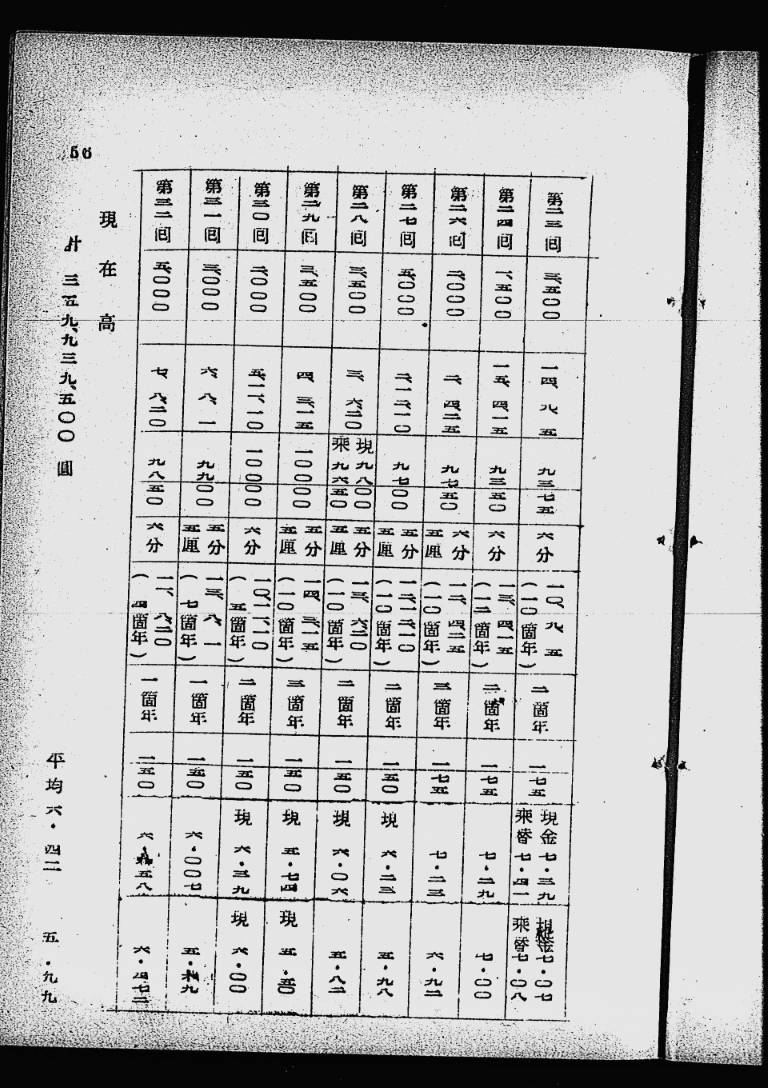 第二三回 三、五〇〇 一四、九、五 九三七五 六分 一〇、九、五 (一〇箇年) 二箇年 一七五 現金七・三九 乘替七・四一 現金七・〇七 乘替七・〇八
第二四回 一、五〇〇 一五、四、一五 九三五〇 六分 一三、四、一五 (一二箇年) 二箇年 一七五 七・二九 七・〇〇
第二六回 二、〇〇〇 二、四、二五 九七五〇 六分五厘 一二、四、二五 (一〇箇年) 三箇年 一七五 七・二三 六・九二
第二七回 五、〇〇〇 二、一二、一〇 九七〇〇 五分五厘 一二、一二、一〇 (一〇箇年) 二箇年 一五〇 現 六・二三 五・九八
第二八回 三、五〇〇 三、六、二〇 現九八〇〇 乘九六五〇 五分五厘 一三、六、二〇 (一〇箇年) 二箇年 一五〇 現 六・〇六 五・八二
第二九回 三、五〇〇 四、三、一五 一〇〇〇〇 五分五厘 一四、三、一五 (一〇箇年) 三箇年 一五〇 現 五・七四 現 五・五〇
第三〇回 二、〇〇〇 五、一一、一〇 一〇〇〇〇 六分 一〇、一一、一〇 (五箇年) 二箇年 一五〇 現 六・三九 現 六・〇〇
第三一回 三、〇〇〇 六、八、一 九九〇〇 五分五厘 一三、八、一 (七箇年) 一箇年 一五〇 六・〇〇七
第三二回 五、〇〇〇 七、八、二〇 九八五〇 六分 一一、八、二〇 (四箇年) 一箇年 一五〇 六・四七二
現在高
計 三五九、九三九、五〇〇圓 平均 六・四二 五・九九
56